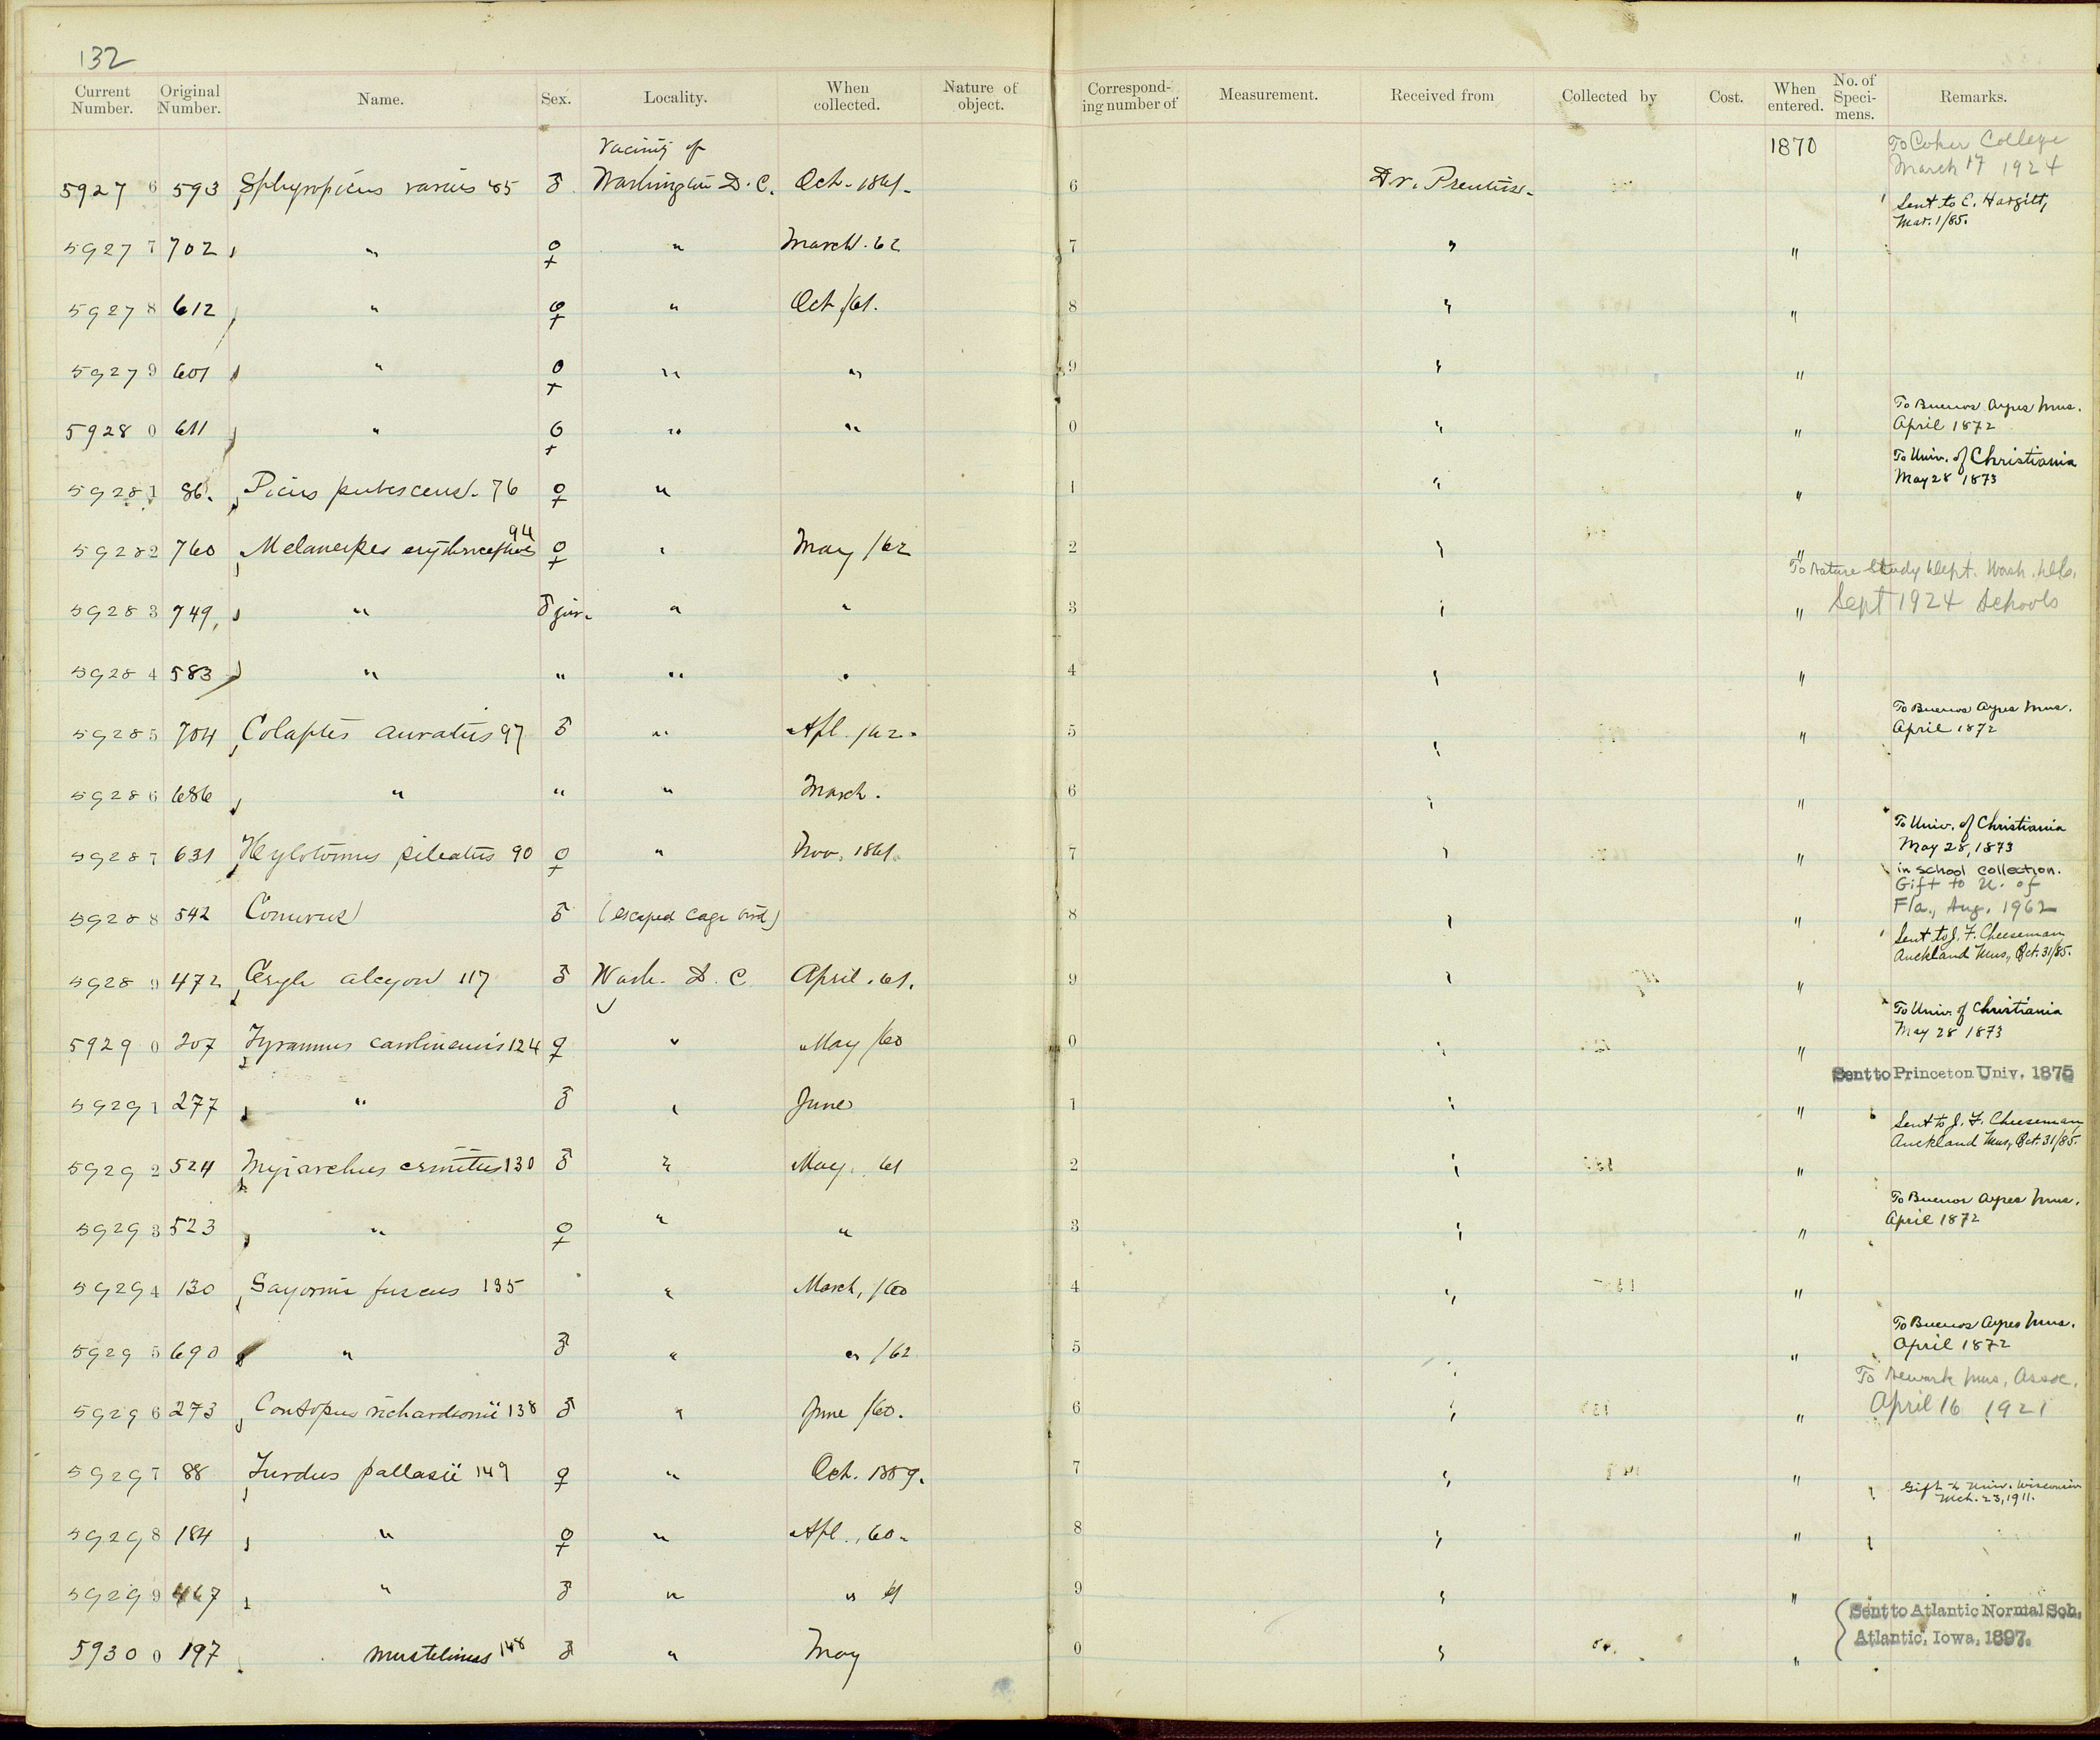 132
Current Number. Original Number. Name. Sex. Locality. When collected. Nature of object. Correspond-ing number of Measurement. Received from Collected by Cost. When entered. No. of Speci-mens. Remarks.
Vacinity of 1870 To Coker College
March 17 1924
59276 593 Sphyropicus varius 85 ♂ Washington D.C. Oct. 1861. 6 Dr. Prentiss Sent to E. Hargitt,
Mar. 1/85.
59277 702 " ♀ " March. 62 7 " "
59278 612 " ♀ " Oct /61. 8 " "
59279 601 " ♀ " " 9 " "
To Buenos Ayres Mus.
59280 611 " ♀ " " 0 " " April 1872
To Univ. of Christiania
59281 86. Picus pubescens. 76 ♀ " 1 " " May 28 1873
59282 760 Melanerpes erythrocephalus 94 ♀ " May /62 2 " "
To Nature Study Dept. Wash.
59283 749, " ♂ juv. " " 3 " " Sept 1924 Schools
59284 583 " " " " 4 " "
To Buenos Ayres Mus.
59285 704 Colaptes auratus 97 ♂ " Apl. /62. 5 " " April 1872
59286 686 " " " March. 6 " "
To Univ. of Christiania
59287 631 Hylotomus pileatus 90 ♀ " Nov. 1861. 7 " " May 28, 1873
in school collection.
Gift to U. of
59288 542 Conurus ♂ (escaped cage bird) 8 " " Fla., Aug. 1962
Sent to J. F. Cheeseman
Auckland Mus., Oct. 31/85.
59289 472 Ceryle alcyon 117 ♂ Wash. D. C April. 61. 9 " "
To Univ. of Christiania
59290 207 Tyrannus carolinensis 124 ♀ " May /60 0 " " May 28 1873
Sent to Princeton Univ. 1875
59291 277 " ♂ " June 1 " "
Sent to J. F. Cheeseman
Auckland Mus., Oct. 31/85.
59292 524 Myiarchus crinitus 130 ♂ " May. 61 2 " "
To Buenos Ayres Mus.
59293 523 " ♀ " " 3 " " April 1872
59294 130 Sayornis fuscus 135 " March, /60 4 " "
To Buenos Ayres Mus.
59295 690 " ♂ " " /62 5 " " April 1872
To Newark Mus. Assoc.
59296 273 Contopus richardsonii 138 ♂ " June /60. 6 " " April 16 1921
59297 88 Turdus pallasii 149 ♀ " Oct. 1859. 7 " " Gift to Univ. Wisconsin
Mch. 23, 1911.
59298 184 " ♀ " Apl., 60. 8 " "
59299 467 " ♂ " " 61 9 " "
Sent to Atlantic Normal Sch.
Atlantic, Iowa, 1897.
59300 197 mustelinus 148 ♂ " May 0 " "